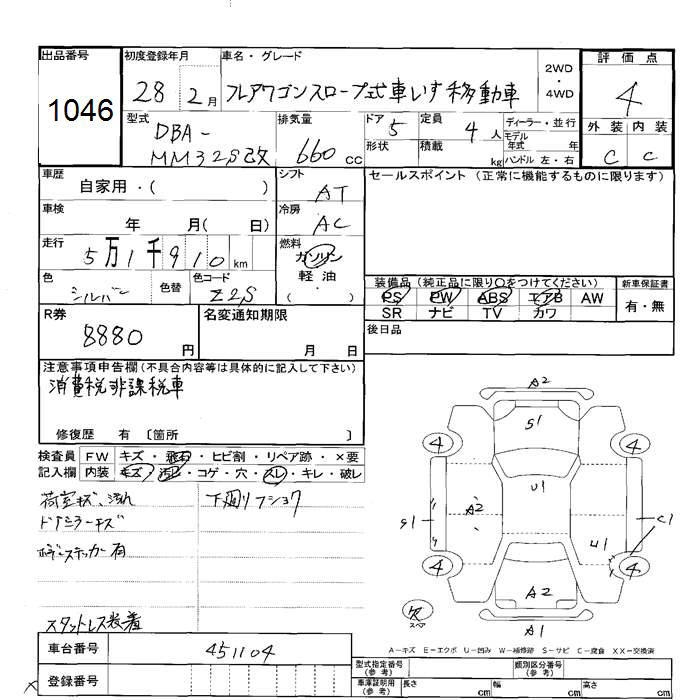 出品番号
1046
初度登録年月
28 2月
車名・グレード
フレアワゴンスロープ式車いす移動車
2WD
・
4WD
評価点
4
外装 内装
C C
型式
DBA-
MM32S改
排気量
660 cc
ドア 5
形状
定員 4人
積載 kg
ディーラー・並行
モデル
年式 年
ハンドル 左・右
車歴
自家用・( )
シフト
AT
車検
年 月( 日)
冷房
AC
走行
5万1千910km
燃料
ガソリン
軽油
( )
色
シルバー
色替
色コード
Z2S
R券
8880円
名変通知期限
月 日
セールスポイント(正常に機能するものに限ります)
装備品(純正品に限り〇をつけてください)
PS PW ABS エアB AW
SR ナビ TV カワ
新車保証書
有・無
後日品
注意事項申告欄(不具合内容等は具体的に記入して下さい)
消費税非課税車
修復歴 有 〔箇所 〕
検査員
記入欄
FW キズ・飛石・ヒビ割・リペア跡・×要
内装 キズ・汚レ・コゲ・穴・スレ・キレ・破レ
荷室キズ、汚れ
ドアミラーキズ
ボディステッカー有
スタットレス装着
下廻りフショク
A2
S1
4
4
U1
A2
S1
C1
U1
4
4
A2
A1
欠
スペア
A-キズ E-エクボ U-凹み W-補修跡 S-サビ C-腐食 XX-交換済
車台番号
451104
登録番号
型式指定番号
(参考)
類別区分番号
(参考)
車庫証明用
(参考)
長さ cm
幅 cm
高さ cm